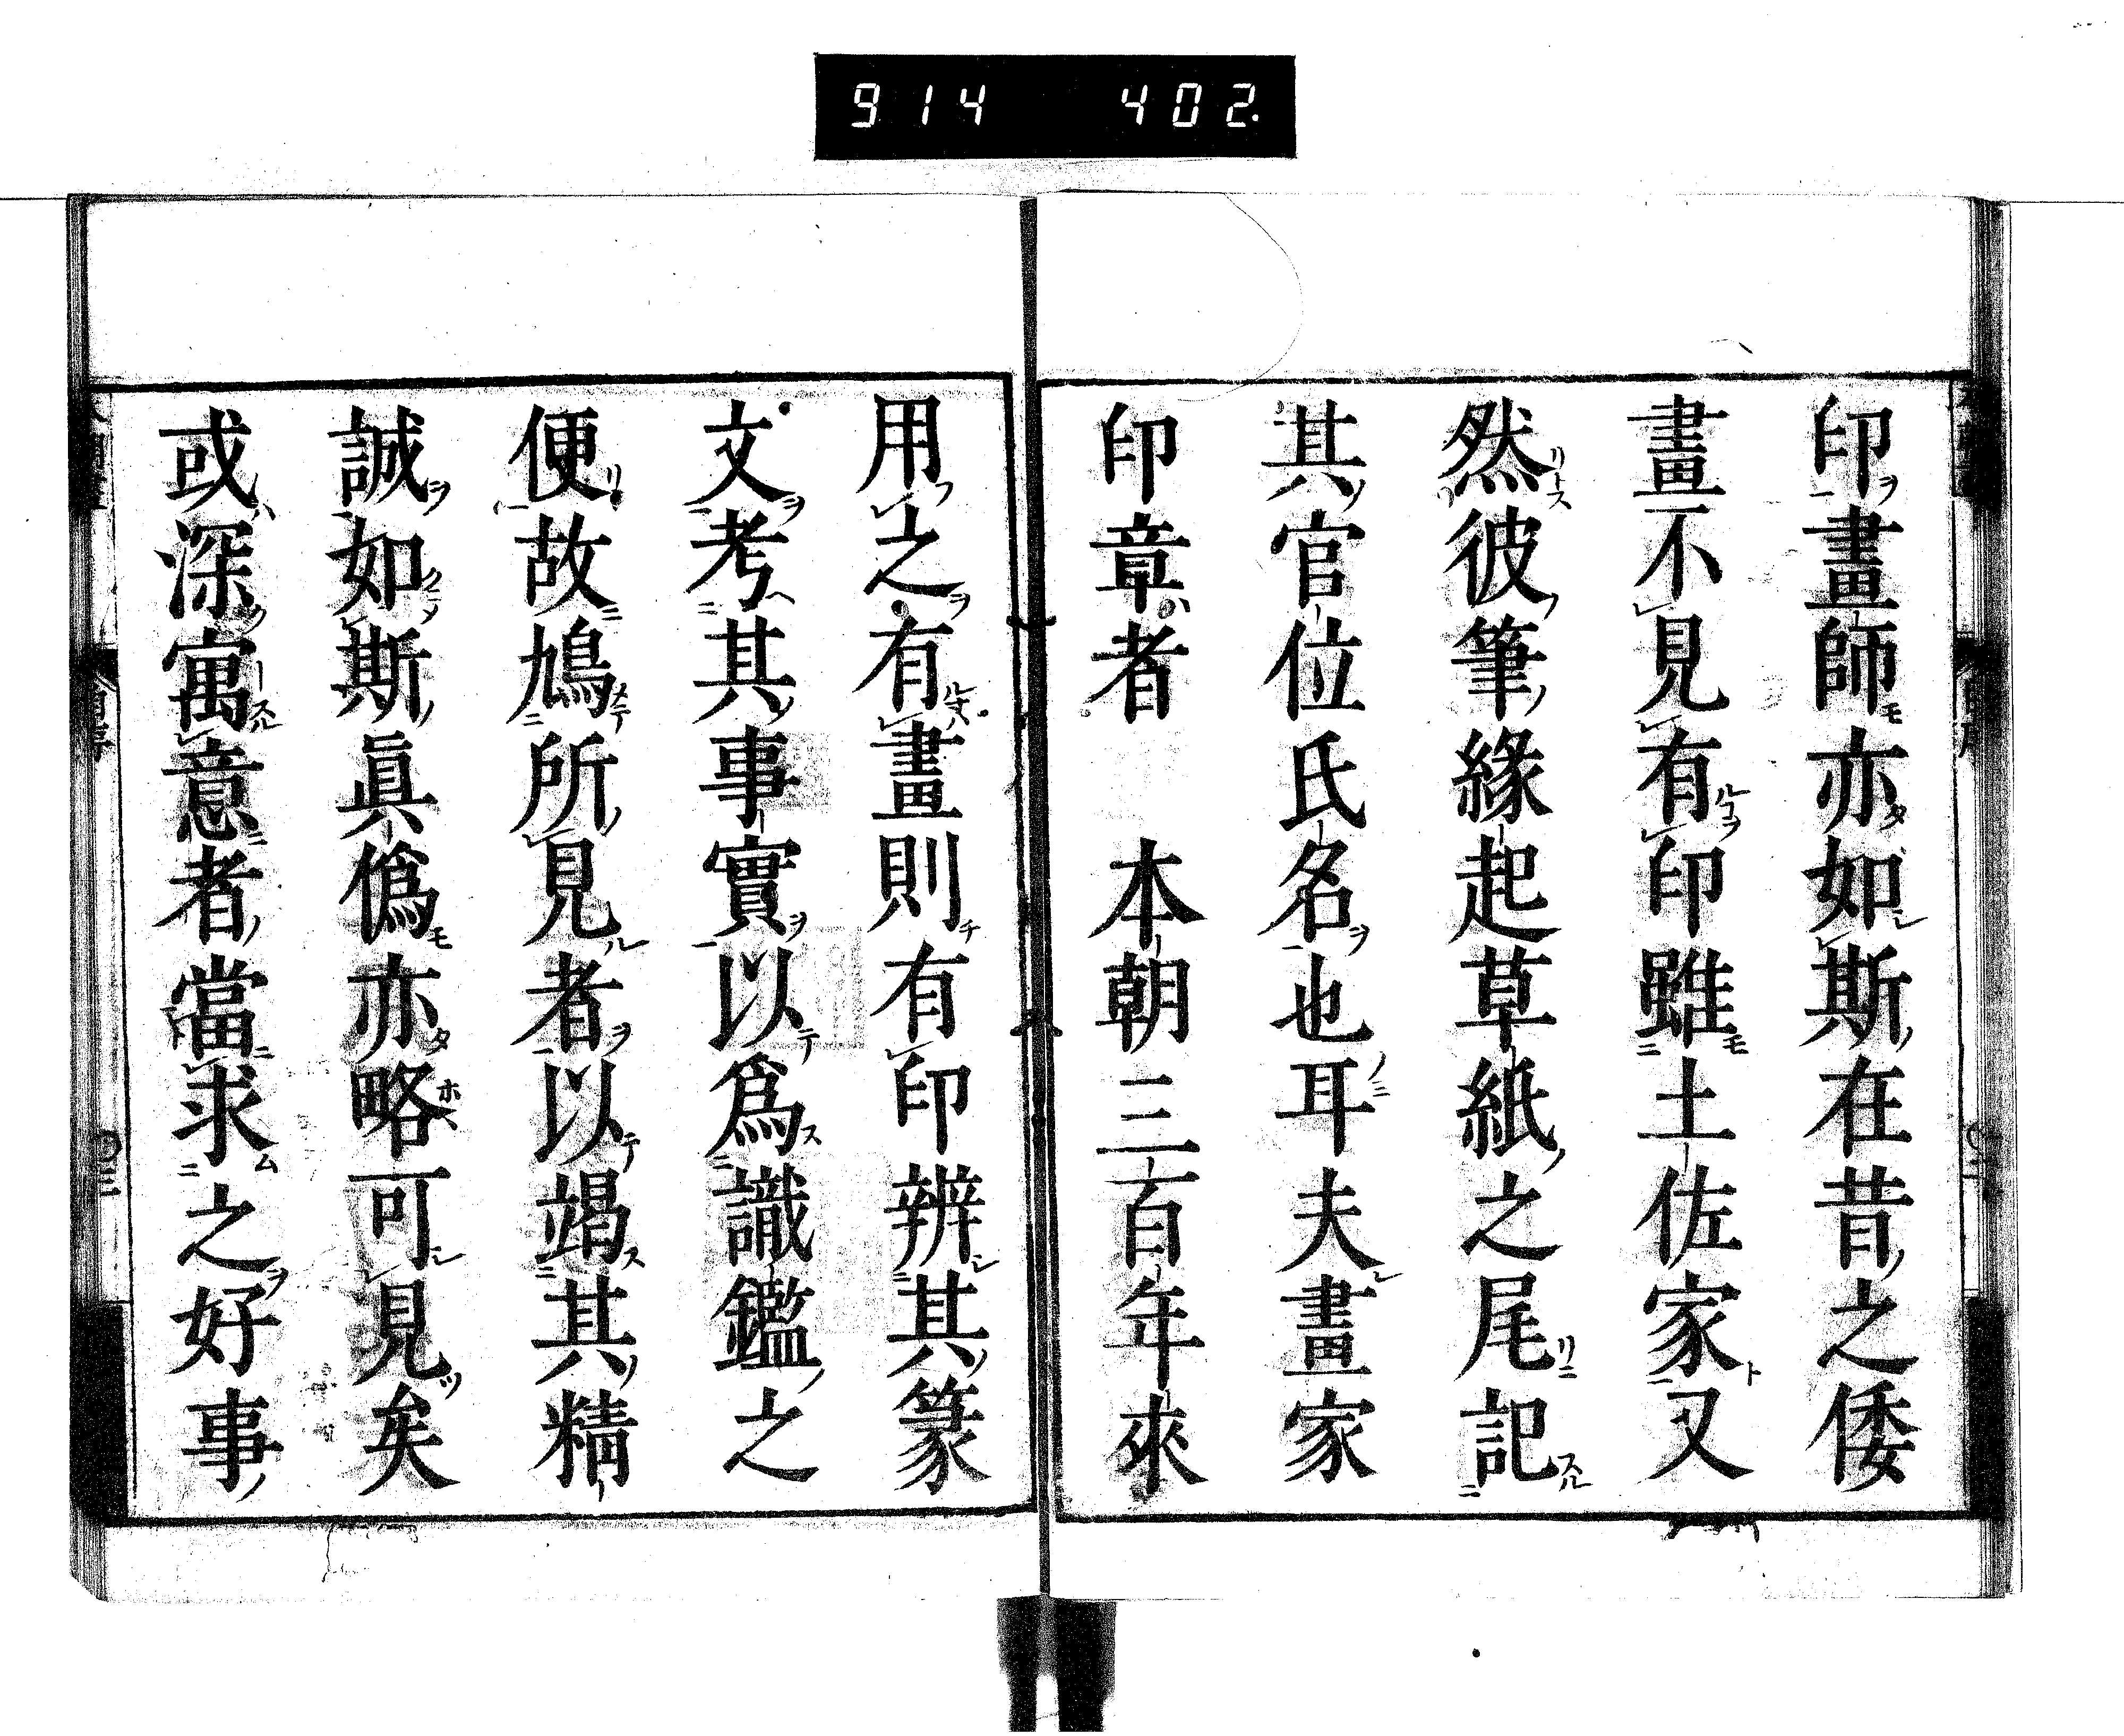 914 402.
印畫師亦如斯在昔之倭
畫不見有印雖土佐家又
然彼筆緣起草紙之尾記
其官位氏名也耳夫畫家
印章者 本朝三百年來
用之有畫則有印辨其篆
文考其事實以爲識鑑之
便故鳩所見者以竭其精
誠如斯眞僞亦略可見矣
或深寓意者當求之好事